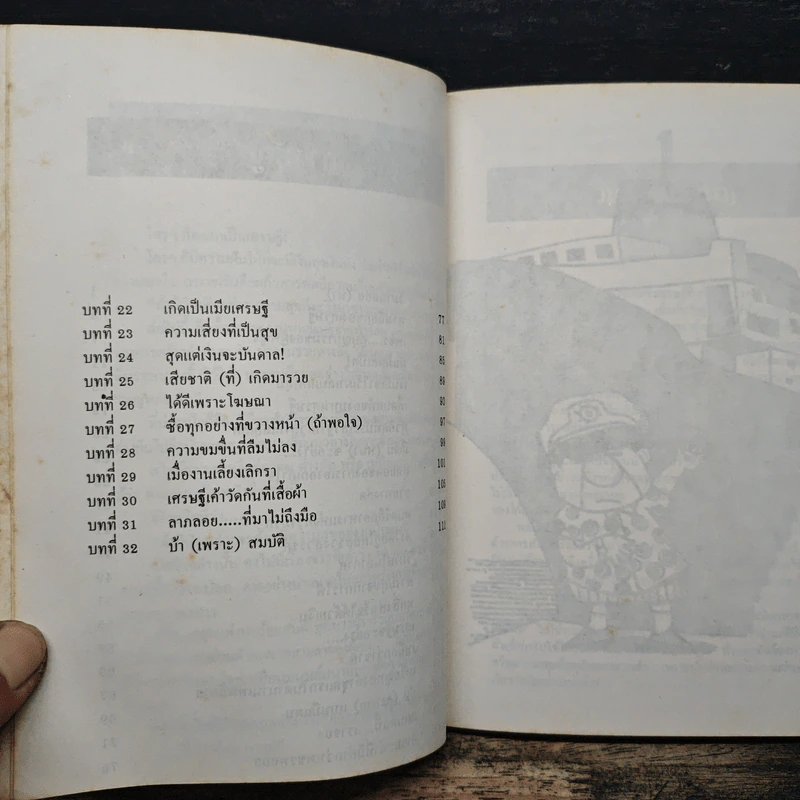 บทที่ 22 เกิดเป็นเมียเศรษฐี 77
บทที่ 23 ความเสี่ยงที่เป็นสุข 81
บทที่ 24 สุดแต่เงินจะบันดาล! 85
บทที่ 25 เสียชาติ (ที่) เกิดมารวย 89
บทที่ 26 ได้ดีเพราะโฆษณา 93
บทที่ 27 ซื้อทุกอย่างที่ขวางหน้า (ถ้าพอใจ) 97
บทที่ 28 ความขมขื่นที่ลืมไม่ลง 99
บทที่ 29 เมื่องานเลี้ยงเลิกรา 101
บทที่ 30 เศรษฐีเค้าวัดกันที่เสื้อผ้า 105
บทที่ 31 ลาภลอย.....ที่มาไม่ถึงมือ 108
บทที่ 32 บ้า (เพราะ) สมบัติ 111